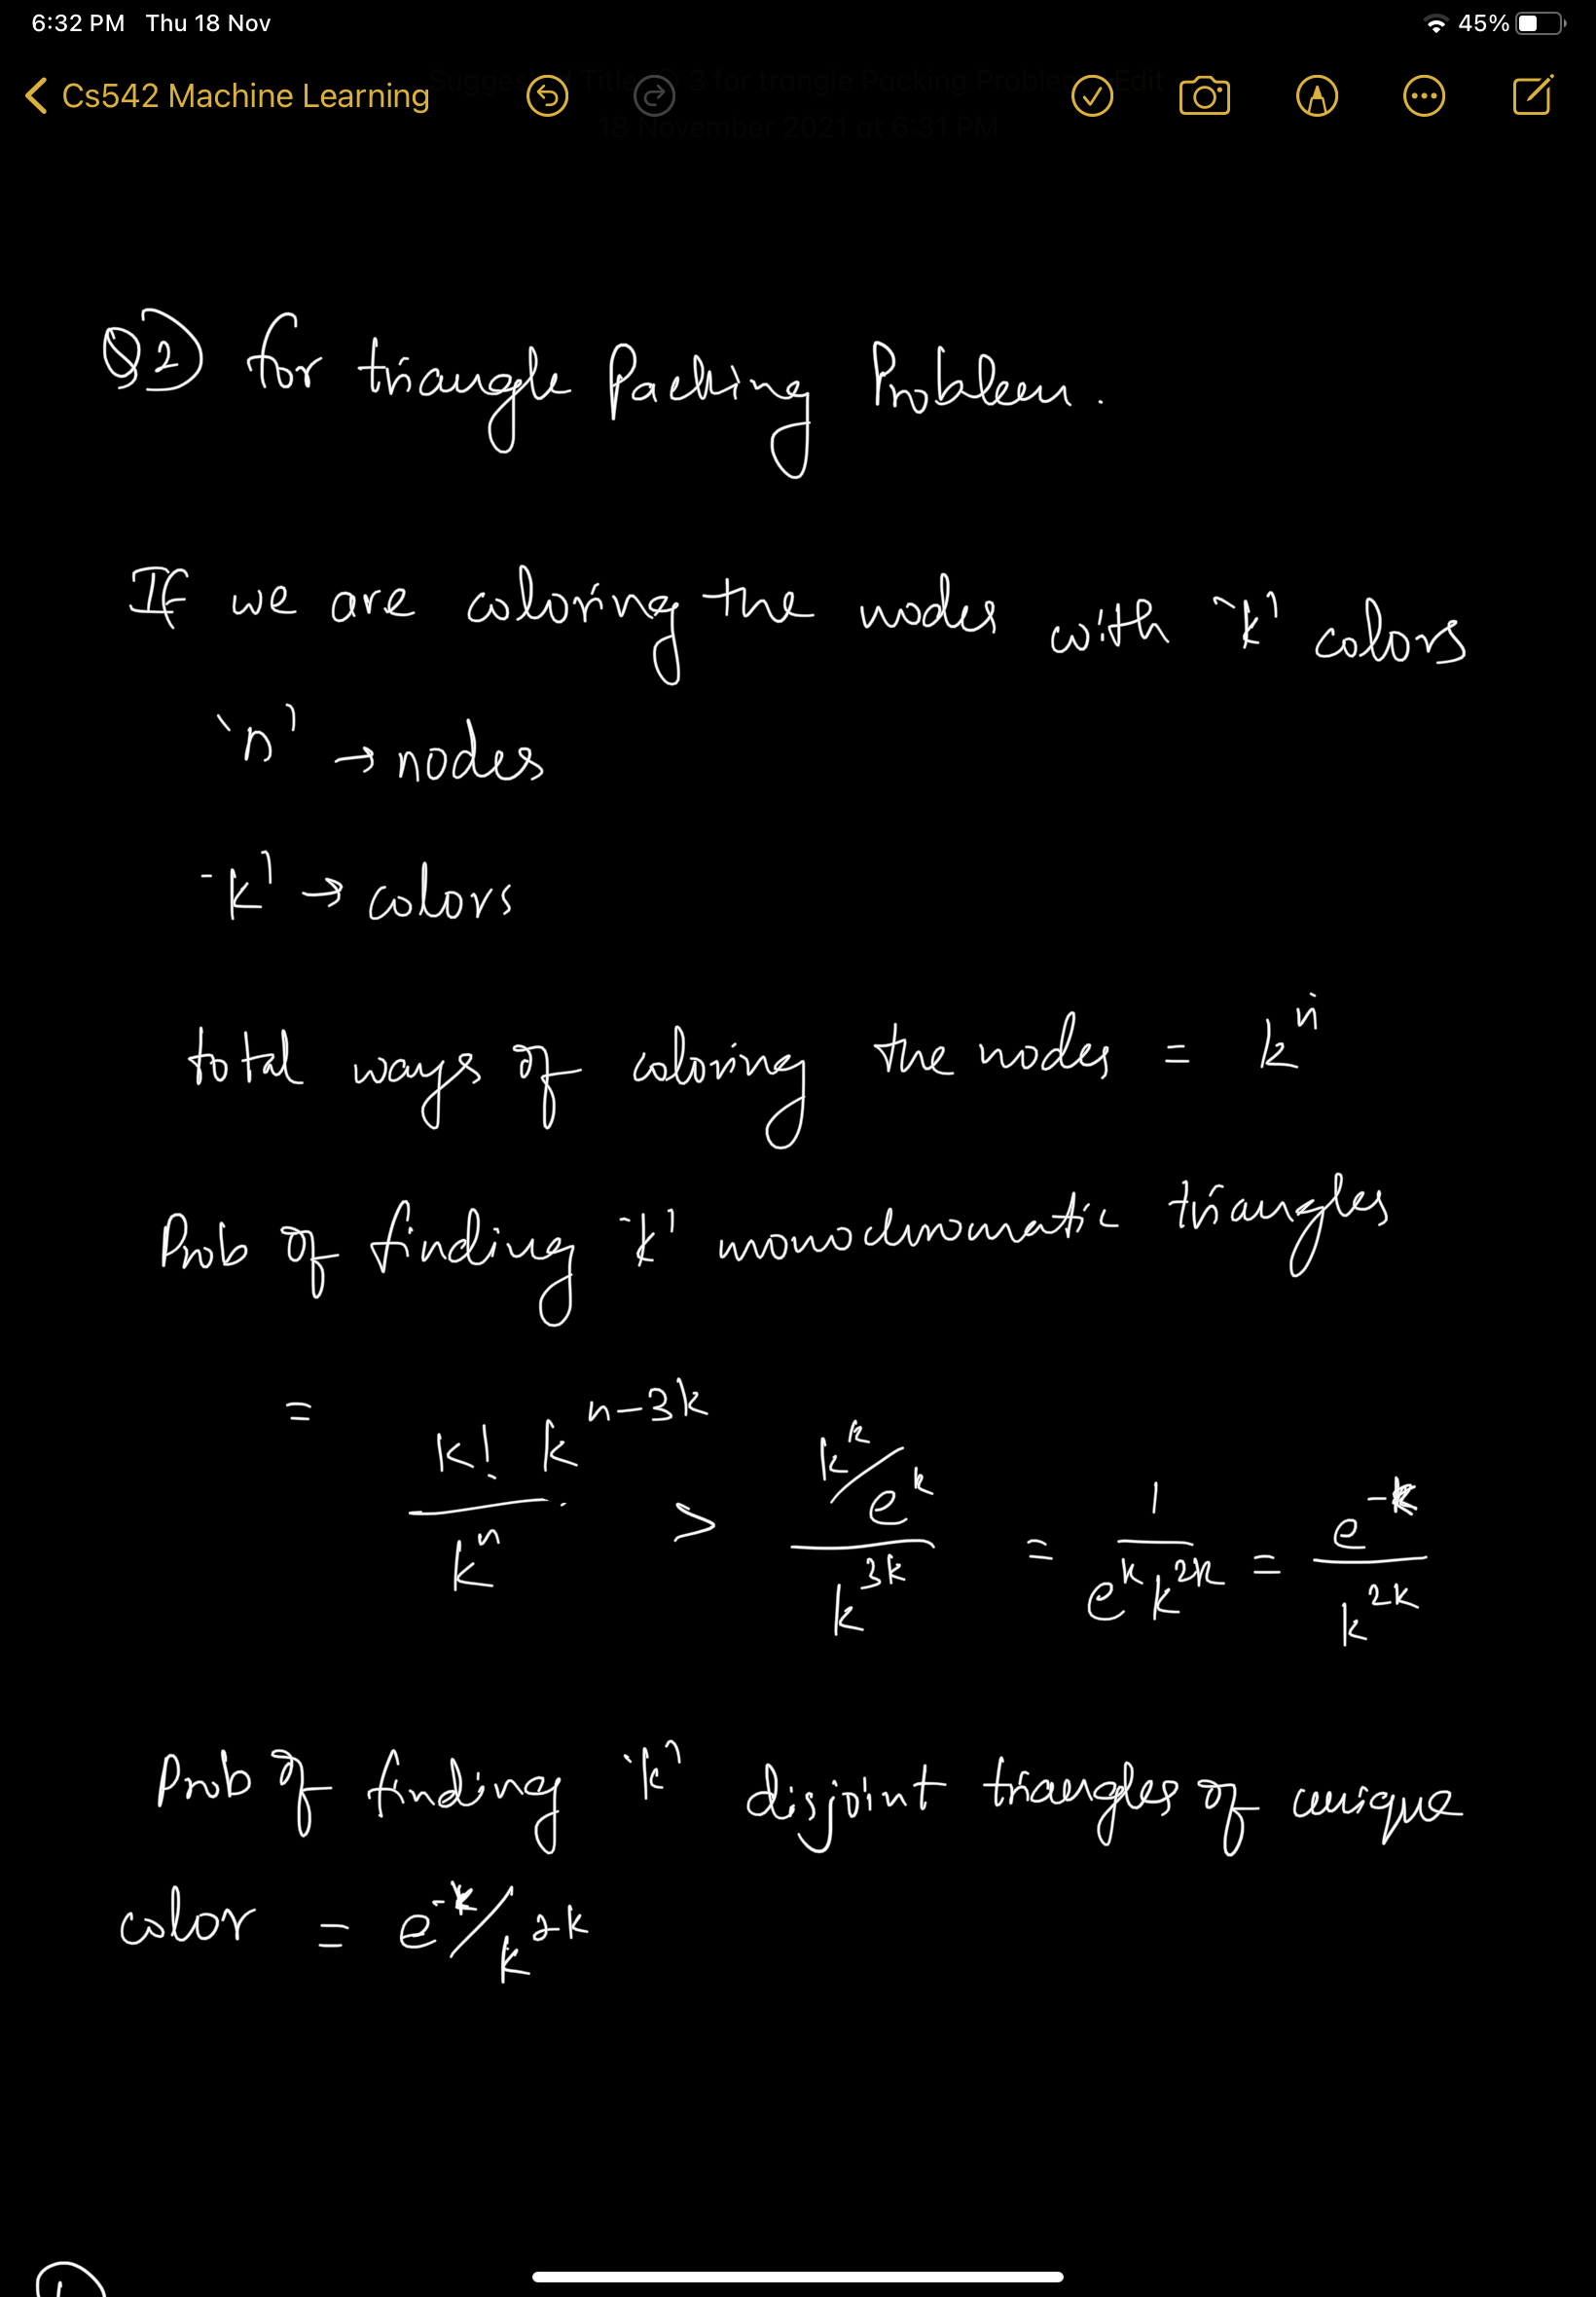 6:32 PM Thu 18 Nov 45%
Cs542 Machine Learning
18 November 2021 at 6:31 PM
Q2) for triangle Packing Problem.
If we are coloring the nodes with 'k' colors
'n' → nodes
'k' → colors
total ways of coloring the nodes = k^n
Prob of finding 'k' monochromatic triangles
= k! k^{n-3k} / k^n > (k^k/e^k) / k^{3k} = 1 / (e^k k^{2k}) = e^{-k} / k^{2k}
Prob of finding 'k' disjoint triangles of unique
color = e^{-k}/k^{2k}